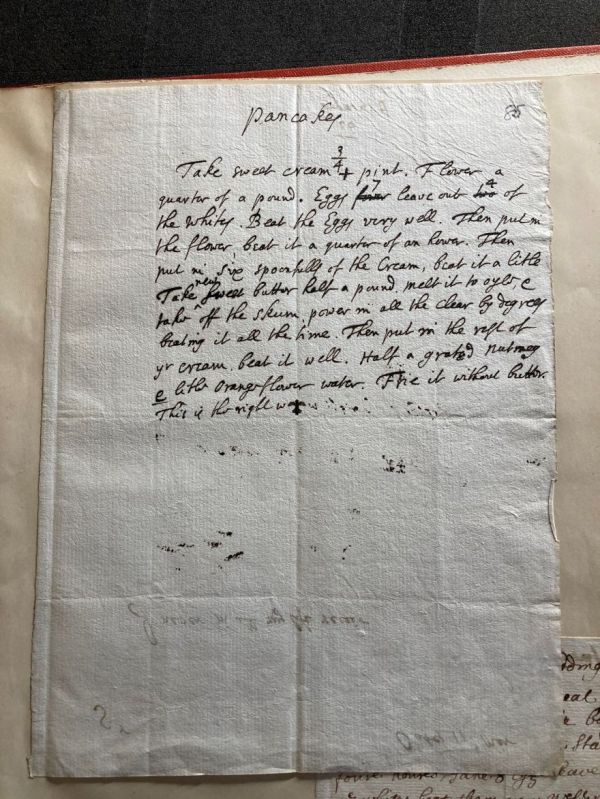 85
Pancakes
Take sweet cream 3/4 pint. Flower a
quarter of a pound. Eggs four 7 leave out two 4 of
the whites. Beat the Eggs very well. Then put in
the flower beat it a quarter of an hower. Then
put in six spoonfulls of the Cream, beat it a litle
Take new sweet butter half a pound melt it to oyle, &
take off the skum, power in all the clear by degrees
beating it all the time. Then put in the rest of
yr cream. beat it well. Half a grated nutmeg
& litle Orangeflower water. Frie it without butter.
This is the right way